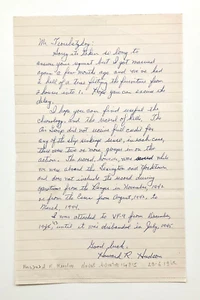 Mr. Tzembalzky:
Sorry it taken so long to
answer your request but I got married
again a few months ago and we've had
a hell of a time fitting the furniture from
2 houses into 1. Hope you can excuse the
delay.
I hope you can find useful the
chronology and the record of kills. The
Air Group did not receive full credit for
any of the ship sinkings since, in each case,
there were two or more groups in on the
action. The record, however, was while
we was aboard the Lexington and Yorktown,
and does not include the record during
operations from the Ranger in November, 1942,
or from the from August, 1943, to
March, 1944.
I was attached to VF-9 from December,
until it was disbanded in July, 1945.
Good luck,
Howard R. Hudson